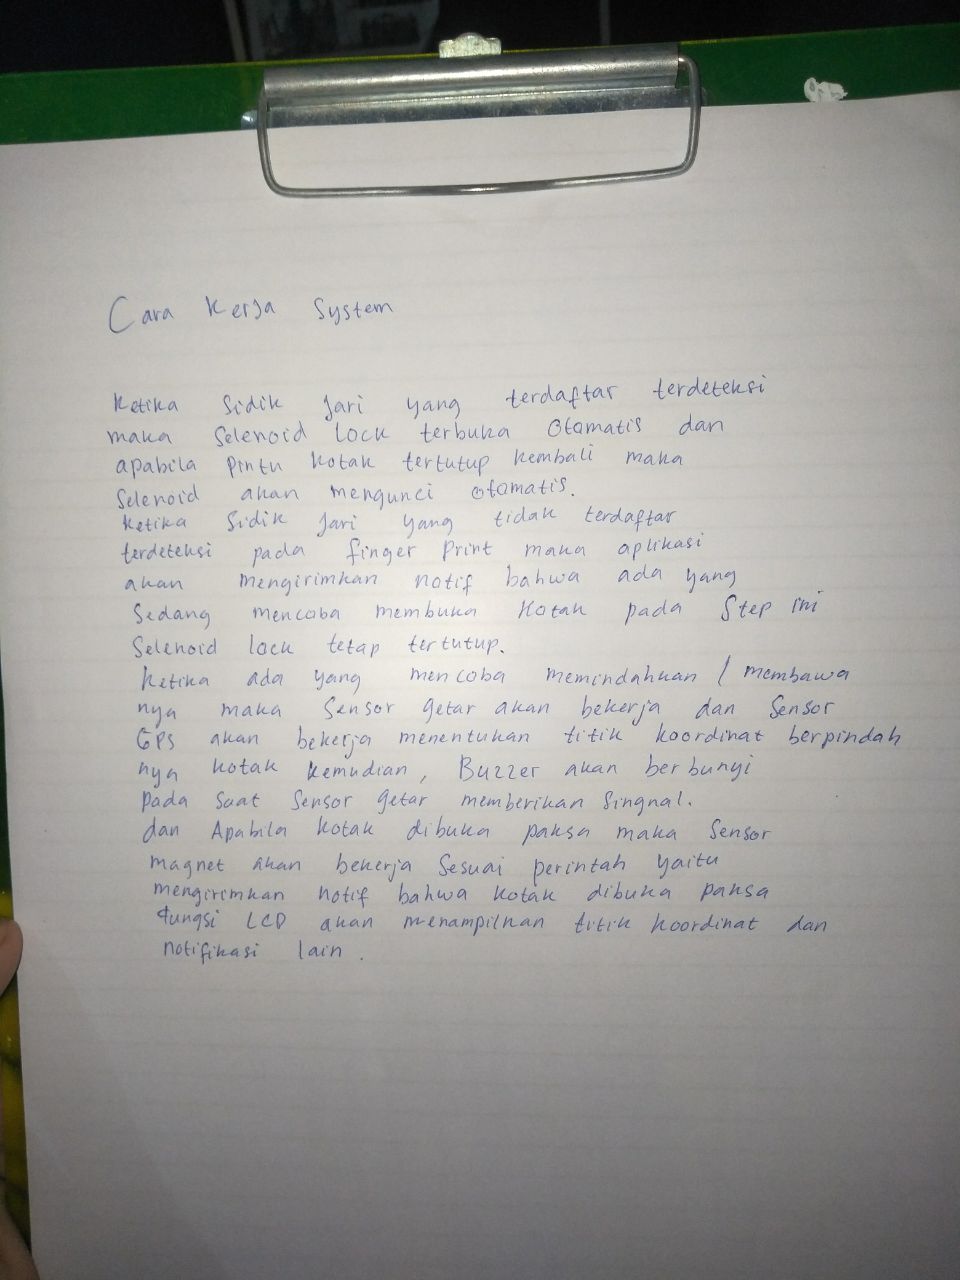 Cara Kerja System
Ketika Sidik Jari yang terdaftar terdeteksi
maka Selenoid Lock terbuka Otomatis dan
apabila Pintu Kotak tertutup Kembali maka
Selenoid akan mengunci otomatis.
Ketika Sidik Jari yang tidak terdaftar
terdeteksi pada finger Print maka aplikasi
akan mengirimkan notif bahwa ada yang
Sedang mencoba membuka Kotak pada Step ini
Selenoid lock tetap tertutup.
Ketika ada yang mencoba memindahkan / membawa
nya maka Sensor getar akan bekerja dan Sensor
GPS akan bekerja menentukan titik koordinat berpindah
nya kotak kemudian, Buzzer akan berbunyi
pada saat Sensor getar memberikan Singnal.
dan Apabila kotak dibuka paksa maka Sensor
magnet akan bekerja Sesuai perintah yaitu
mengirimkan notif bahwa kotak dibuka paksa
fungsi LCD akan menampilkan titik koordinat dan
notifikasi lain.